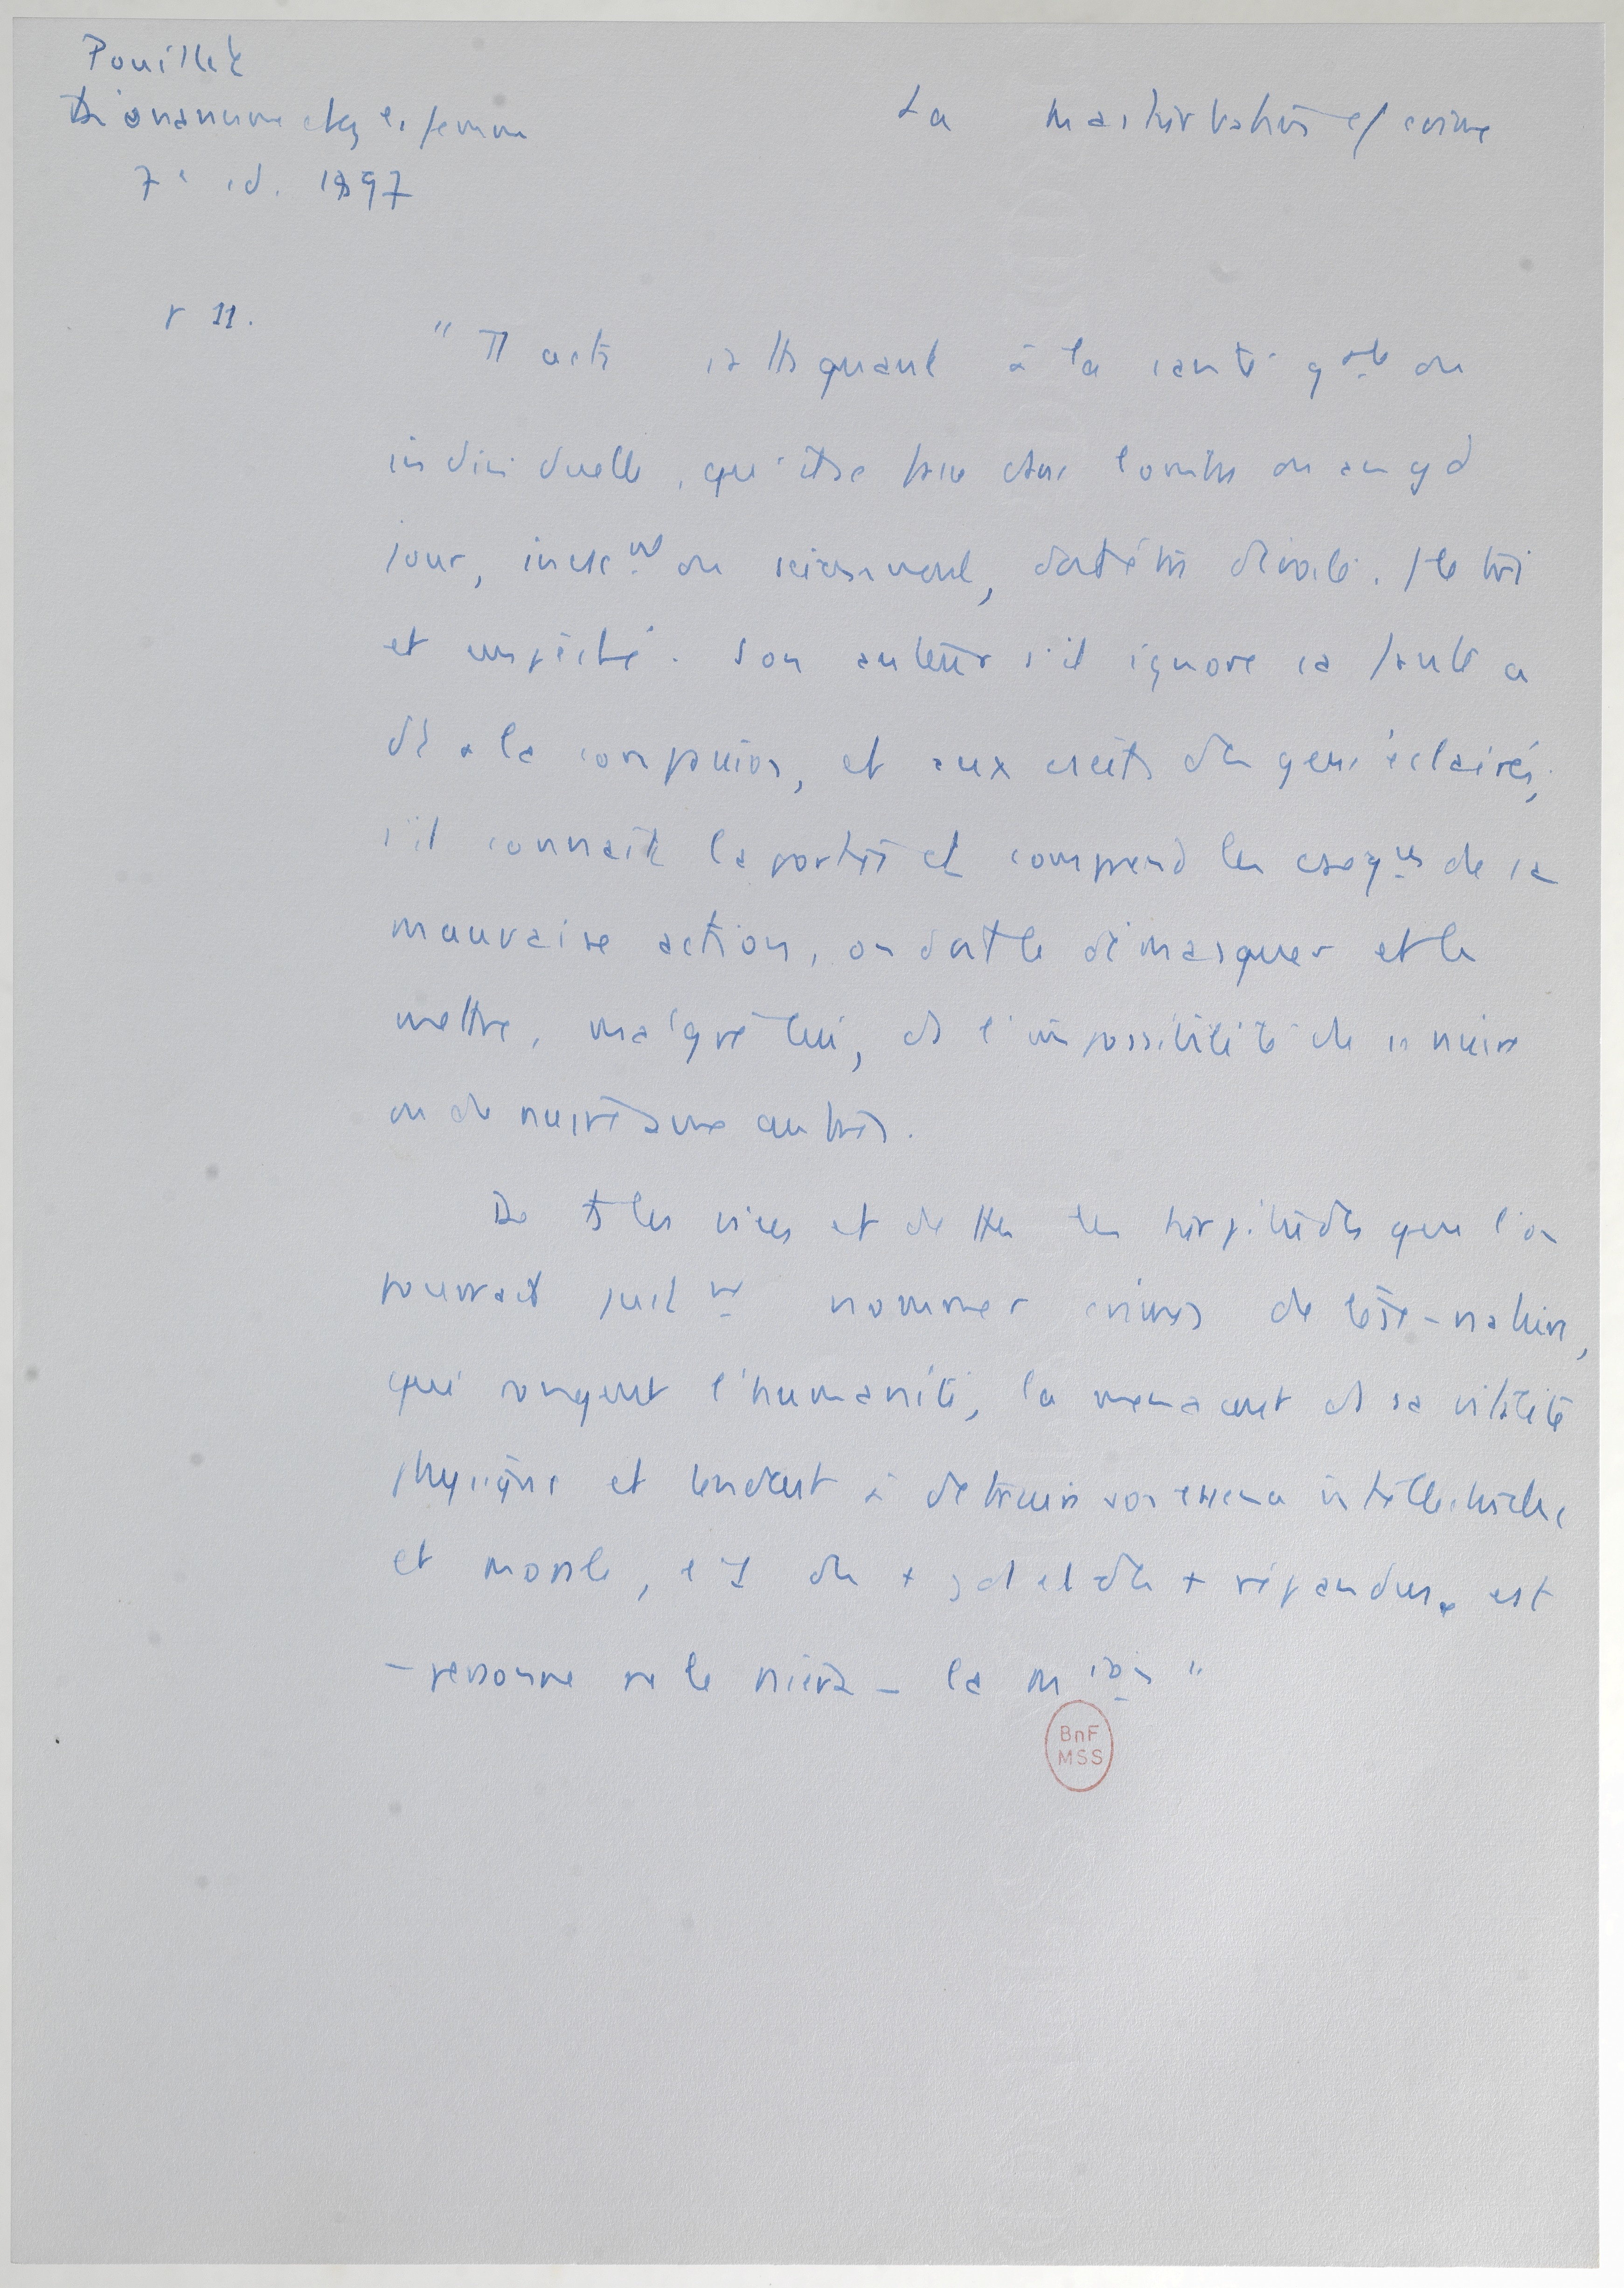 Pouillet
De l'onanisme chez la femme
7e éd. 1897
La masturbation c/ crime
p 11.
"Tt acte attaquant à la santé gale ou
individuelle, qu'il se passe dans l'ombre ou au gd
jour, inct ou sciemment, doit être dévoilé, flétri
et empêché. Son auteur s'il ignore sa faute a
dt à la compassion, et aux avis des gens éclairés,
s'il connaît la portée et comprend les conseqces de sa
mauvaise action, on doit le démasquer et le
mettre, malgré lui, ds l'impossibilité de se nuire
ou de nuire aux autres.
De ts les vices et de ttes les turpitudes que l'on
pourrait just mt nommer crimes de lèse-nature,
qui rongent l'humanité, la menacent ds sa vitalité
physique et tendent à détruire son essence intellectuelle
et morale, 1 des + gds et des + répandus, est
- personne ne le niera - la mion"
BnF
MSS